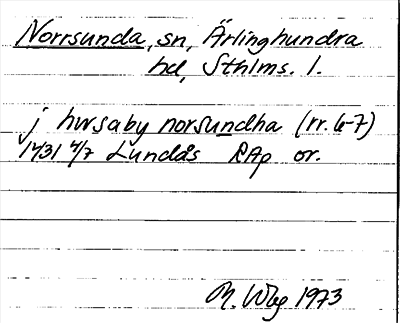 Norrsunda, sn, Ärlinghundra
hd, Sthlms. l.
j hvrsaby norsundha (rr. 6-7)
1431 4/7 Lundås RAp or.
M. Wbg 1973